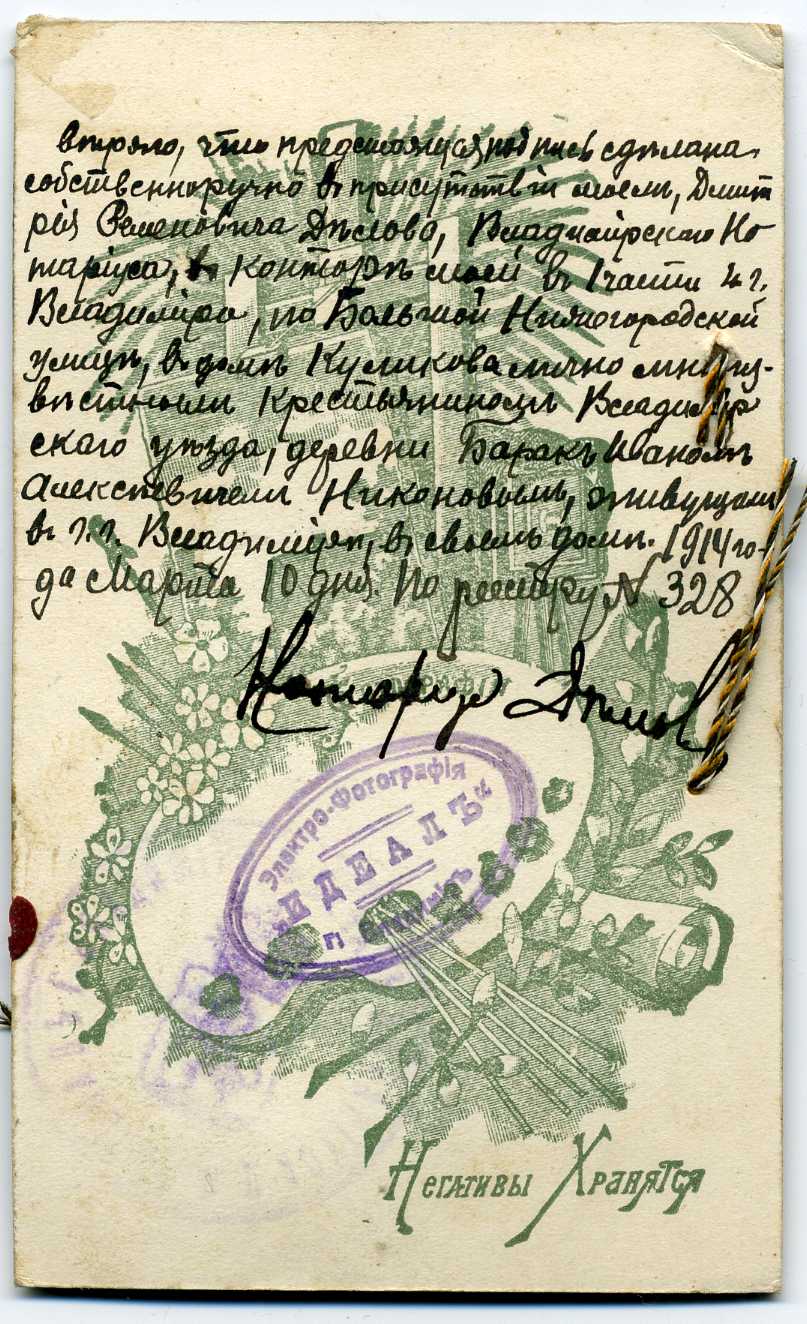 вѣряю, что предстоящая подпись сдѣлана
собственноручно въ присутствіи моемъ, Дмит
рія Семеновича Дѣлова, Владимірскаго Но
таріуса, въ конторѣ моей въ 1 части г.
Владиміра, по Большой Нижегородской
улицѣ, въ домѣ Куликова лично мнѣ из-
вѣстнымъ Крестьяниномъ Владимір
скаго уѣзда, деревни Баракъ Иваномъ
Алексѣевичемъ Никоновымъ, живущимъ
въ г.г. Владимірѣ, въ своемъ домѣ. 1914 го-
да Марта 10 дня. По реестру № 328
Нотаріусъ Дѣловъ
Электро-Фотографія
„ИДЕАЛЪ“
Негативы Хранятся